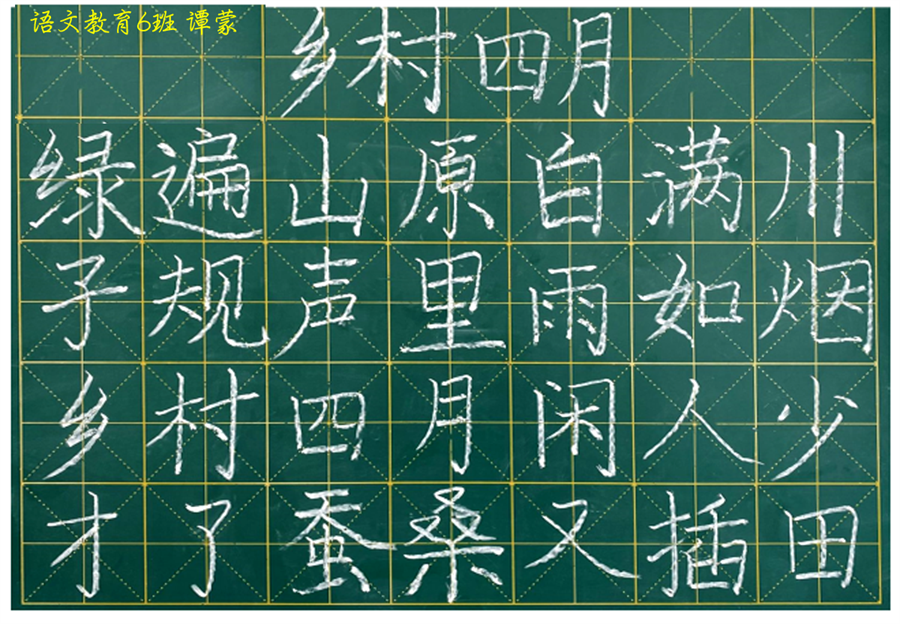 语文教育6班 谭蒙
乡村四月
绿遍山原自满川
子规声里雨如烟
乡村四月闲人少
才了蚕桑又插田